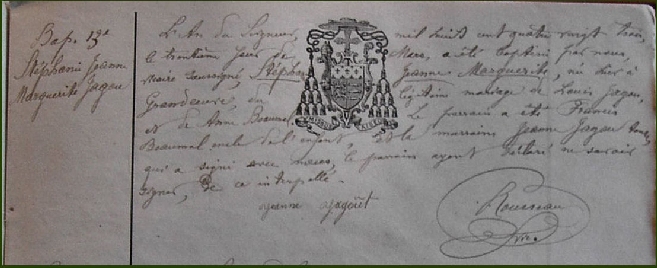 Bap. 13e
Stéphanie Jeanne
Marguerite Jagou
L'An du Seigneur mil huit cent quatre vingt trois,
le trentième jour de Mars, a été baptisé par nous,
Vicaire soussigné, Stéphanie Jeanne Marguerite, née hier à
du légitime mariage de Louis Jagou,
et de Anne Beaumel Le parrain a été Francis
Beaumel oncle de l'enfant et la marraine Jeanne Jagou
qui a signé avec nous, le parrain ayant déclaré ne savoir
signer, de ce interpellé.
Jeanne Jagout
Rousseau